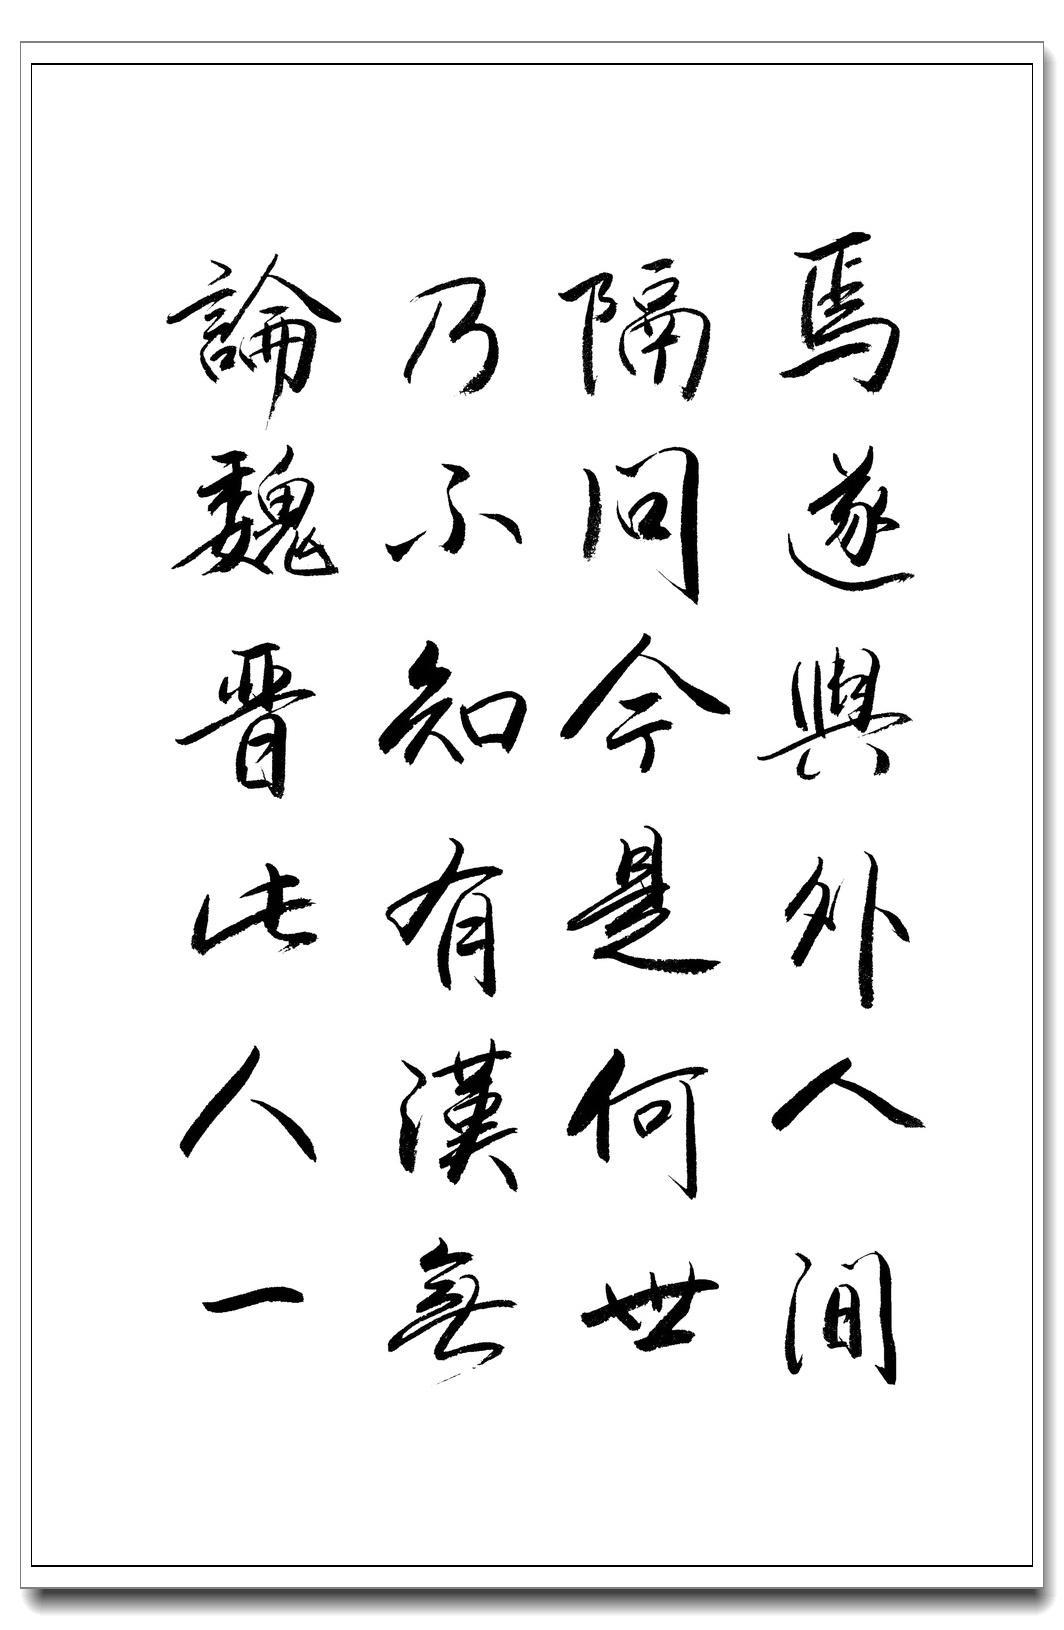 焉遂與外人間
隔問今是何世
乃不知有漢無
論魏晋此人一